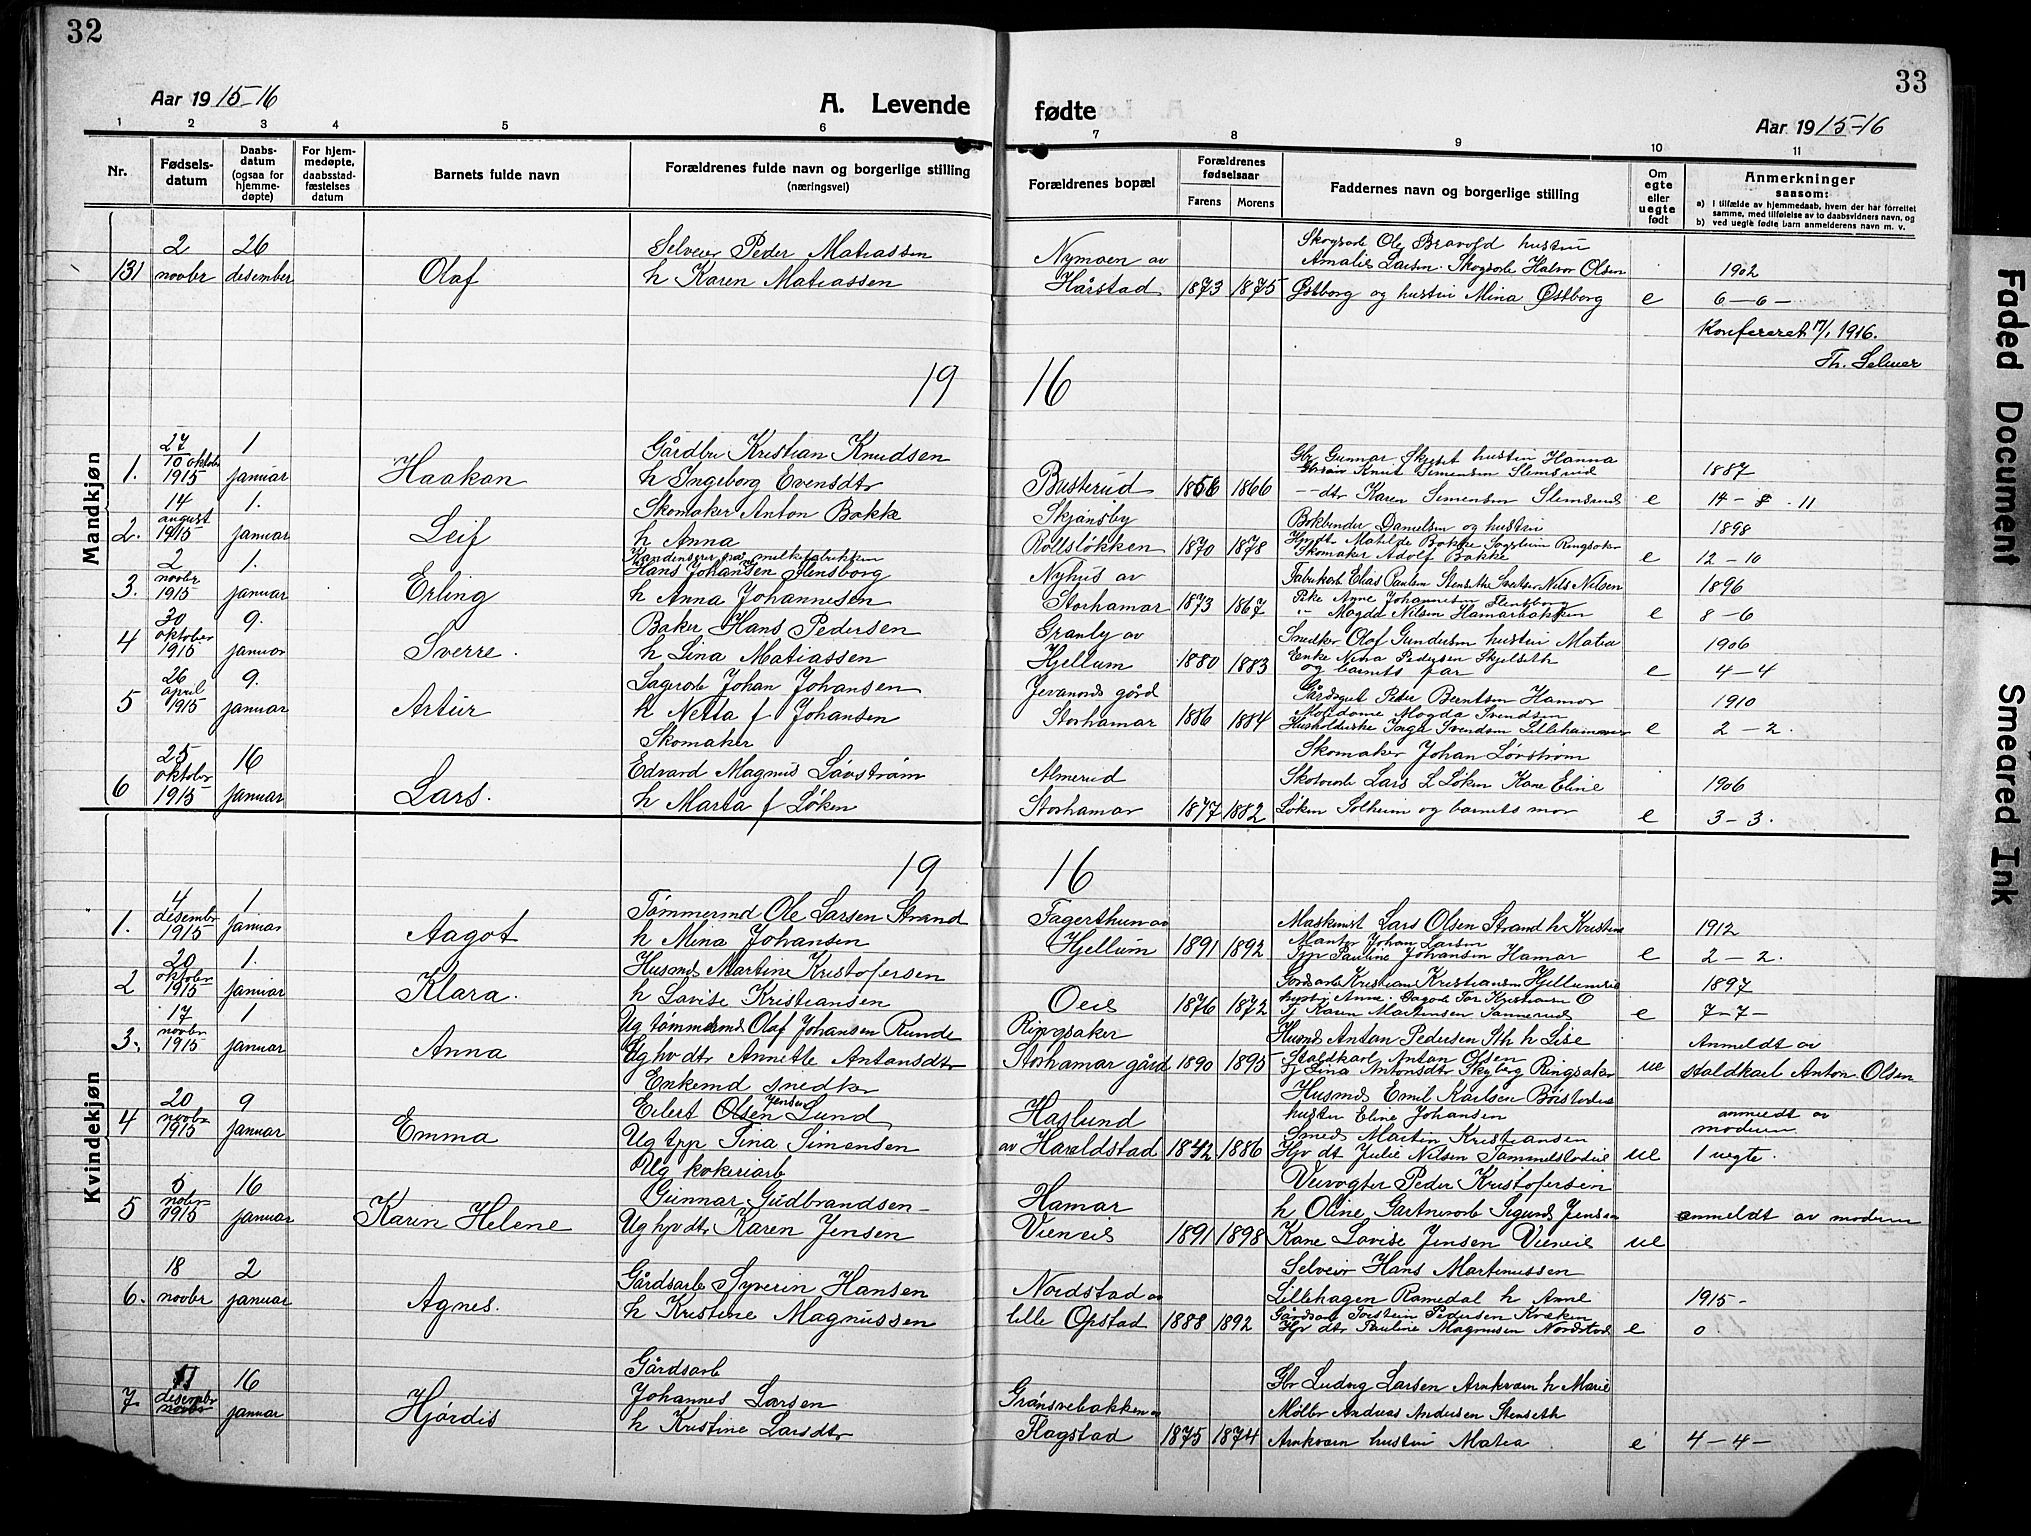 32
33
Aar 1915-16
A. Levende
fødte
Aar 1915-16
1 2 3 4 5 6 7 8 9 10 11
Nr.
Fødsels-
datum
Daabs-
datum
(ogsaa for
hjemme-
døpte)
For hjem-
medøpte,
daabsstad-
fæstelses
datum
Barnets fulde navn
Forældrenes fulde navn og borgerlige stilling
(næringsvei)
Forældrenes bopæl
Forældrenes
fødselsaar
Farens Morens
Faddernes navn og borgerlige stilling
Om
egte
eller
uegte
født
Anmerkninger
saasom:
a) I tilfælde av hjemmedaab, hvem der har forrettet
samme, med tilføielse av to daabsvidners navn, og
b) ved uegte fødte barn anmelderens navn m. v.
Mandkjøn
131
2
novbr
26
desember
Olaf
Selveier Peder Matiassen
h Karen Matiassen
Nymoen av
Hårstad
1873 1875
Skogsarb Ole Bravold hustru
Amalie Larsen. Skogsarb Halvor Olsen
Østborg og hustru Mina Østborg
e
1902
6-6-
Konfereret 17/1 1916.
Th. Selmer
19 16
1.
27
10 oktober
1915
1
januar
Haakon
Gårdbr Kristian Knudsen
h Ingeborg Evensdtr
Busterud
1856 1866
Gbr Gunnar Skjeset hustru Hanna
Gbrsøn Knut Simensen Slemsrud
--dtr Karen Simensen Slemsrud
e
1887
14-8-11
2.
14
august
1915
1.
januar
Leif
Skomaker Anton Bakke
h Anna
Skjønsby
Rollsløkken
1870 1878
Bokbinder Danielsen og hustru
Hjvdtr Matilde Bakke Ringsaker
Skomaker Adolf Bakke
e
1898
12-10
3.
2
novbr
1915
1.
januar
Erling
Kondenserer på melkefabrikken
Hans Johansen Stensborg
h Anna Johannesen
Nyhus av
Storhamar
1873 1867
Fabrikarb Elias Paulsen Stenseth Sveitser Nils Nilsen
Pike Anne Johannesen Stensborg
-"- Magda Nilsen Hamarbakken
e
1896
8-6
4
30
oktober
1915
9.
januar
Sverre.
Baker Hans Pedersen
h Lina Matiassen
Granly av
Hjellum
1880 1883
Snedker Olaf Gundersen hustru Matea
Enke Nina Pedersen Skjelseth
og barnets far
e
1906
4-4
5
26
april
1915
9.
januar
Artur
Sagarb Johan Johansen
h Netta f Johansen
Jevanords gård
Storhamar
1886 1884
Gårdsgut Peder Berntsen Hamar
Motedame Magda Svendsen
Husholderske Inga Svendsen Lillehammer
e
1910
2-2.
6
25
oktober
1915
16
januar
Lars.
Skomaker
Edvard Magnus Løvstrøm
h Marta f Løken
Almerud
Storhamar
1877 1882
Skomaker Johan Løvstrøm
Skotøiarb Lars L Løken Kone Eline
Løken Solheim og barnets mor
e
1906
3-3.
Kvindekjøn
19 16
1.
4
desembr
1915
1
januar
Aagot
Tømmermd Ole Larsen Strand
h Mina Johansen
Fagerthun av
Hjellum
1891 1892
Maskinist Lars Olsen Strand h Kristine
Johan Larsen
Tjp Pauline Johansen Hamar
e
1912
2-2.
2
20
oktober
1915
1.
januar
Klara.
Husmd Martine Kristofersen
h Lovise Kristiansen
Oeis
1876 1872
Gårdarb Kristian Kristiansen Hjellumeie
hustru Anne. Dagarb Tor Kristiansen O
Tj Karen Martinsen Tannerud
e
1897
7-7-
3.
17
novbr
1915
1
januar
Anna
Ug tømmermd Olaf Johansen Runde
Ug hvdtr Annette Antonsdtr
Ringsaker
Storhamar gård
1890 1895
Husmd Anton Pedersen Sth h Lise
Staldkarl Anton Olsen
Tj Lina Antonsdtr Skyberg Ringsaker
ue
Anmeldt av
staldkarl Anton Olsen
4
20
novbr
1915
9
januar
Emma
Enkemd snedker
Eilert Olsen Jensen Lund
Ug tpp Tina Simensen
Haslund
av Haraldstad
1842 1886
Husmd Emil Karlsen Børstadeie
hustru Eline Johansen
Smed Martin Kristiansen
Hjv dt Julie Nilsen Tommelstadeie
ue
anmeldt av
moderen
1 uegte.
5
5
novbr
1915
16
januar
Karin Helene
Ug kokeriarb
Gunnar Gudbrandsen-
Ug hjvdtr Karen Jensen
Hamar
Vieneie
1891 1898
Veivogter Peder Kristofersen
h Oline Gartnerarb Sigurd Jensen
Kone Lovise Jensen Vieneie
ue
anmeldt av moderen
6.
18
novbr
2
januar
Agnes.
Gårdsarb Syverin Hansen
h Kristine Magnussen
Nordstad av
lille Opstad
1888 1892
Selveier Hans Martinussen
Lillehagen Romedal h Anne
Gårdsarb Torstein Pedersen Kvæken
Hjv dtr Pauline Magnusen Nordstad
e
1915-
0
7
11
desembr
novbr
16
januar
Hjørdis
Gårdsarb
Johannes Larsen
h Kristine Larsdtr
Grønsvebakken av
Flagstad
1875 1874
Gbr Ludvig Larsen Arnkvern h Marie
Mølbr Andreas Andersen Stenseth
Arnkvern hustru Matea
e
4-4-
Faded Document
Smeared Ink